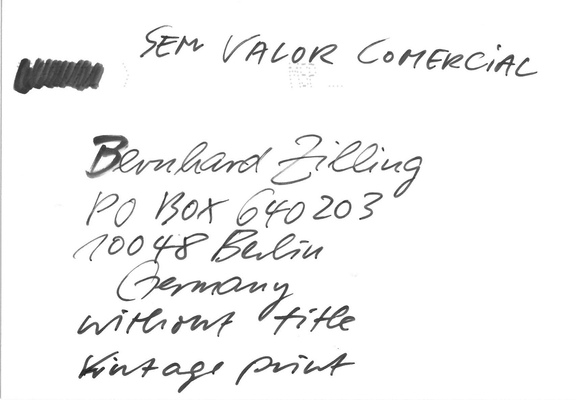 SEM VALOR COMERCIAL
Bernhard Zilling
PO BOX 640203
10048 Berlin
Germany
without title
Vintage print